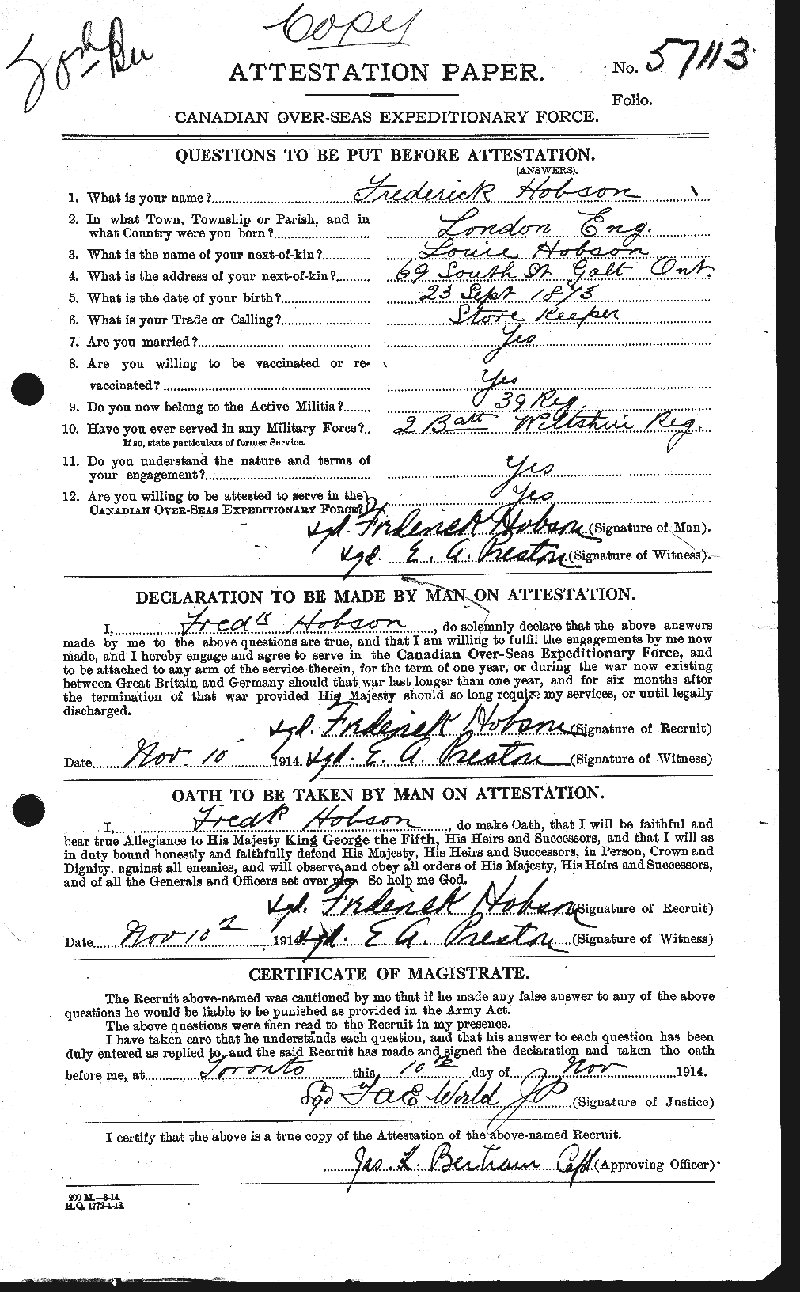 Copy
20th Bn
ATTESTATION PAPER.
No. 57113
Folio.
CANADIAN OVER-SEAS EXPEDITIONARY FORCE.
QUESTIONS TO BE PUT BEFORE ATTESTATION.
(ANSWERS).
1. What is your name? Frederick Hobson
2. In what Town, Township or Parish, and in
what Country were you born? London Eng.
3. What is the name of your next-of-kin? Louie Hobson
4. What is the address of your next-of-kin? 69 South St Galt Ont.
5. What is the date of your birth? 23 Sept 1873
6. What is your Trade or Calling? Store Keeper
7. Are you married? Yes
8. Are you willing to be vaccinated or re-
vaccinated? Yes
9. Do you now belong to the Active Militia? 39 Reg
10. Have you ever served in any Military Force? 2 Batt Wiltshire Reg.
If so, state particulars of former Service.
11. Do you understand the nature and terms of
your engagement? Yes
12. Are you willing to be attested to serve in the
CANADIAN OVER-SEAS EXPEDITIONARY FORCE? Yes
sgd. Frederick Hobson (Signature of Man).
sgd. E. A. Preston (Signature of Witness).
DECLARATION TO BE MADE BY MAN ON ATTESTATION.
I, Fredk Hobson, do solemnly declare that the above answers
made by me to the above questions are true, and that I am willing to fulfil the engagements by me now
made, and I hereby engage and agree to serve in the Canadian Over-Seas Expeditionary Force, and
to be attached to any arm of the service therein, for the term of one year, or during the war now existing
between Great Britain and Germany should that war last longer than one year, and for six months after
the termination of that war provided His Majesty should so long require my services, or until legally
discharged.
sgd. Frederick Hobson (Signature of Recruit)
Date Nov. 10 1914. sgd. E. A. Preston (Signature of Witness)
OATH TO BE TAKEN BY MAN ON ATTESTATION.
I, Fredk Hobson, do make Oath, that I will be faithful and
bear true Allegiance to His Majesty King George the Fifth, His Heirs and Successors, and that I will as
in duty bound honestly and faithfully defend His Majesty, His Heirs and Successors, in Person, Crown and
Dignity, against all enemies, and will observe and obey all orders of His Majesty, His Heirs and Successors,
and of all the Generals and Officers set over me. So help me God.
sgd. Frederick Hobson (Signature of Recruit)
Date Nov 10th 1914 sgd. E A. Preston (Signature of Witness)
CERTIFICATE OF MAGISTRATE.
The Recruit above-named was cautioned by me that if he made any false answer to any of the above
questions he would be liable to be punished as provided in the Army Act.
The above questions were then read to the Recruit in my presence.
I have taken care that he understands each question, and that his answer to each question has been
duly entered as replied to, and the said Recruit has made and signed the declaration and taken the oath
before me, at Toronto this 10th day of Nov 1914.
Sgd World JP (Signature of Justice)
I certify that the above is a true copy of the Attestation of the above-named Recruit.
Jas. L. Bertram Capt. (Approving Officer)
200 M.—8-14.
H.Q. 1772-1-13.